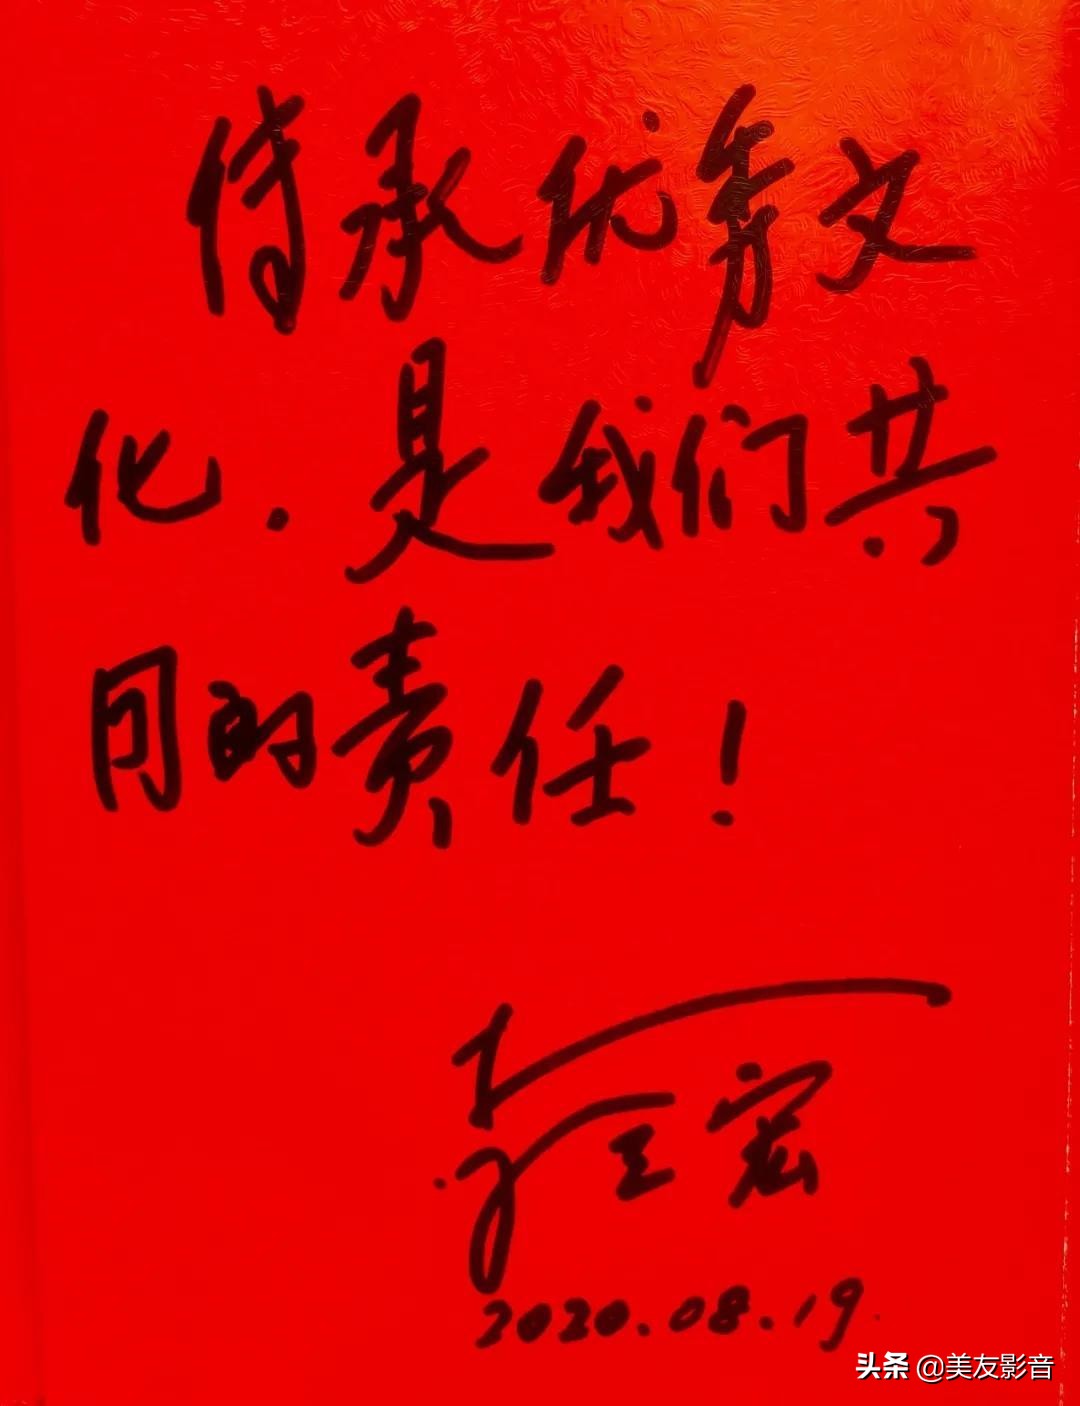 传承优秀文
化.是我们共
同的责任!
宏
2020.08.19.
头条 @美友影音